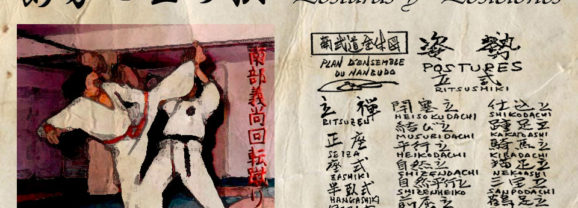 Posturas y Posiciones
南部義尚回転蹴り
南武道全体図
PLAN D'ENSEMBLE
DU NANBUDO
姿勢
POSTURES
立式
RITSUSHIKI
立禅
RITSUZEN
正座
SEIZA
座式
ZASHIKI
半臥式
HANGASHIKI
閉塞立
HEISOKUDACHI
結び立
MUSUBIDACHI
平行立
HEIKODACHI
自然立
SHIZENDACHI
自然平行立
SHIZENHEIKO
前屈立
仕込立
SHIKODACHI
KAKATDASHI
騎馬立
KIBADACHI
猫足立
NEKOASHI
SANPODACHI
鶴足立